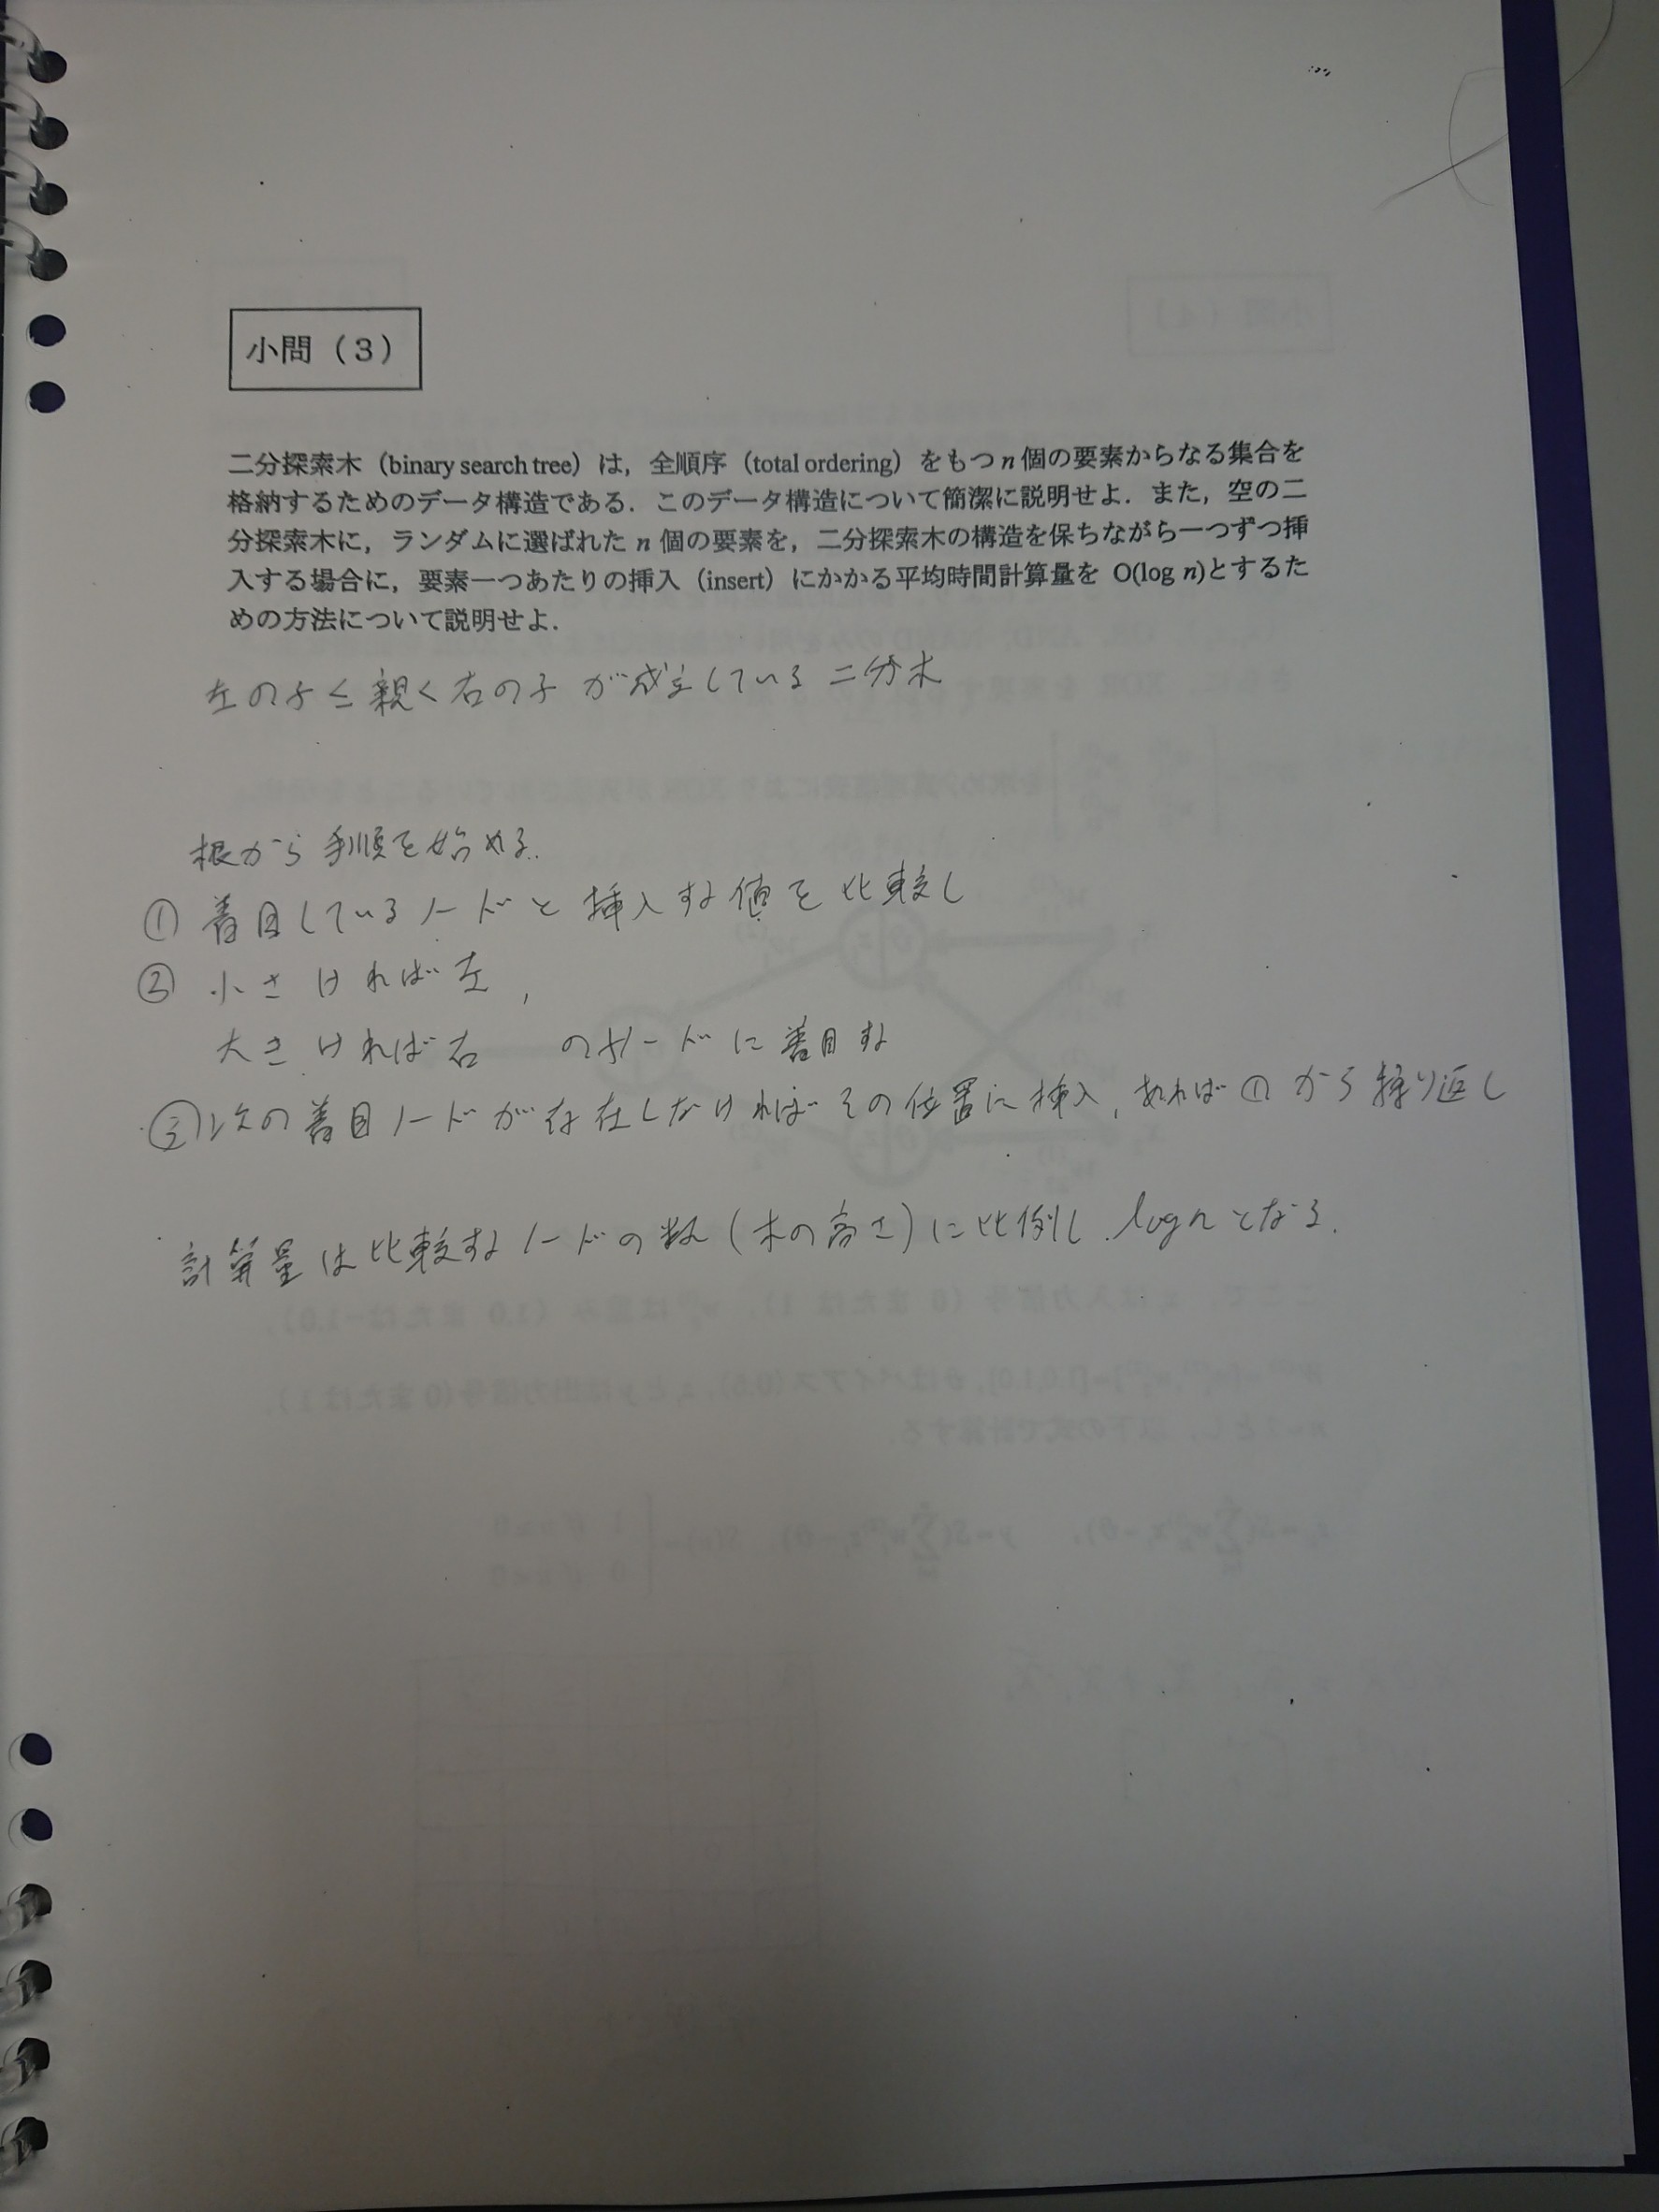 小問（３）
二分探索木（binary search tree）は，全順序（total ordering）をもつ n 個の要素からなる集合を
格納するためのデータ構造である．このデータ構造について簡潔に説明せよ．また，空の二
分探索木に，ランダムに選ばれた n 個の要素を，二分探索木の構造を保ちながら一つずつ挿
入する場合に，要素一つあたりの挿入（insert）にかかる平均時間計算量を O(log n)とするた
めの方法について説明せよ．
左の子≦親<右の子 が成立している 二分木
根から 手順を始める．
① 着目しているノードと 挿入する値を 比較し
② 小さければ左，
大きければ右 の子ノードに着目する
③ 次の着目ノードが存在しなければその位置に挿入，あれば①から繰り返し
計算量は比較するノードの数（木の高さ）に比例し log n となる．